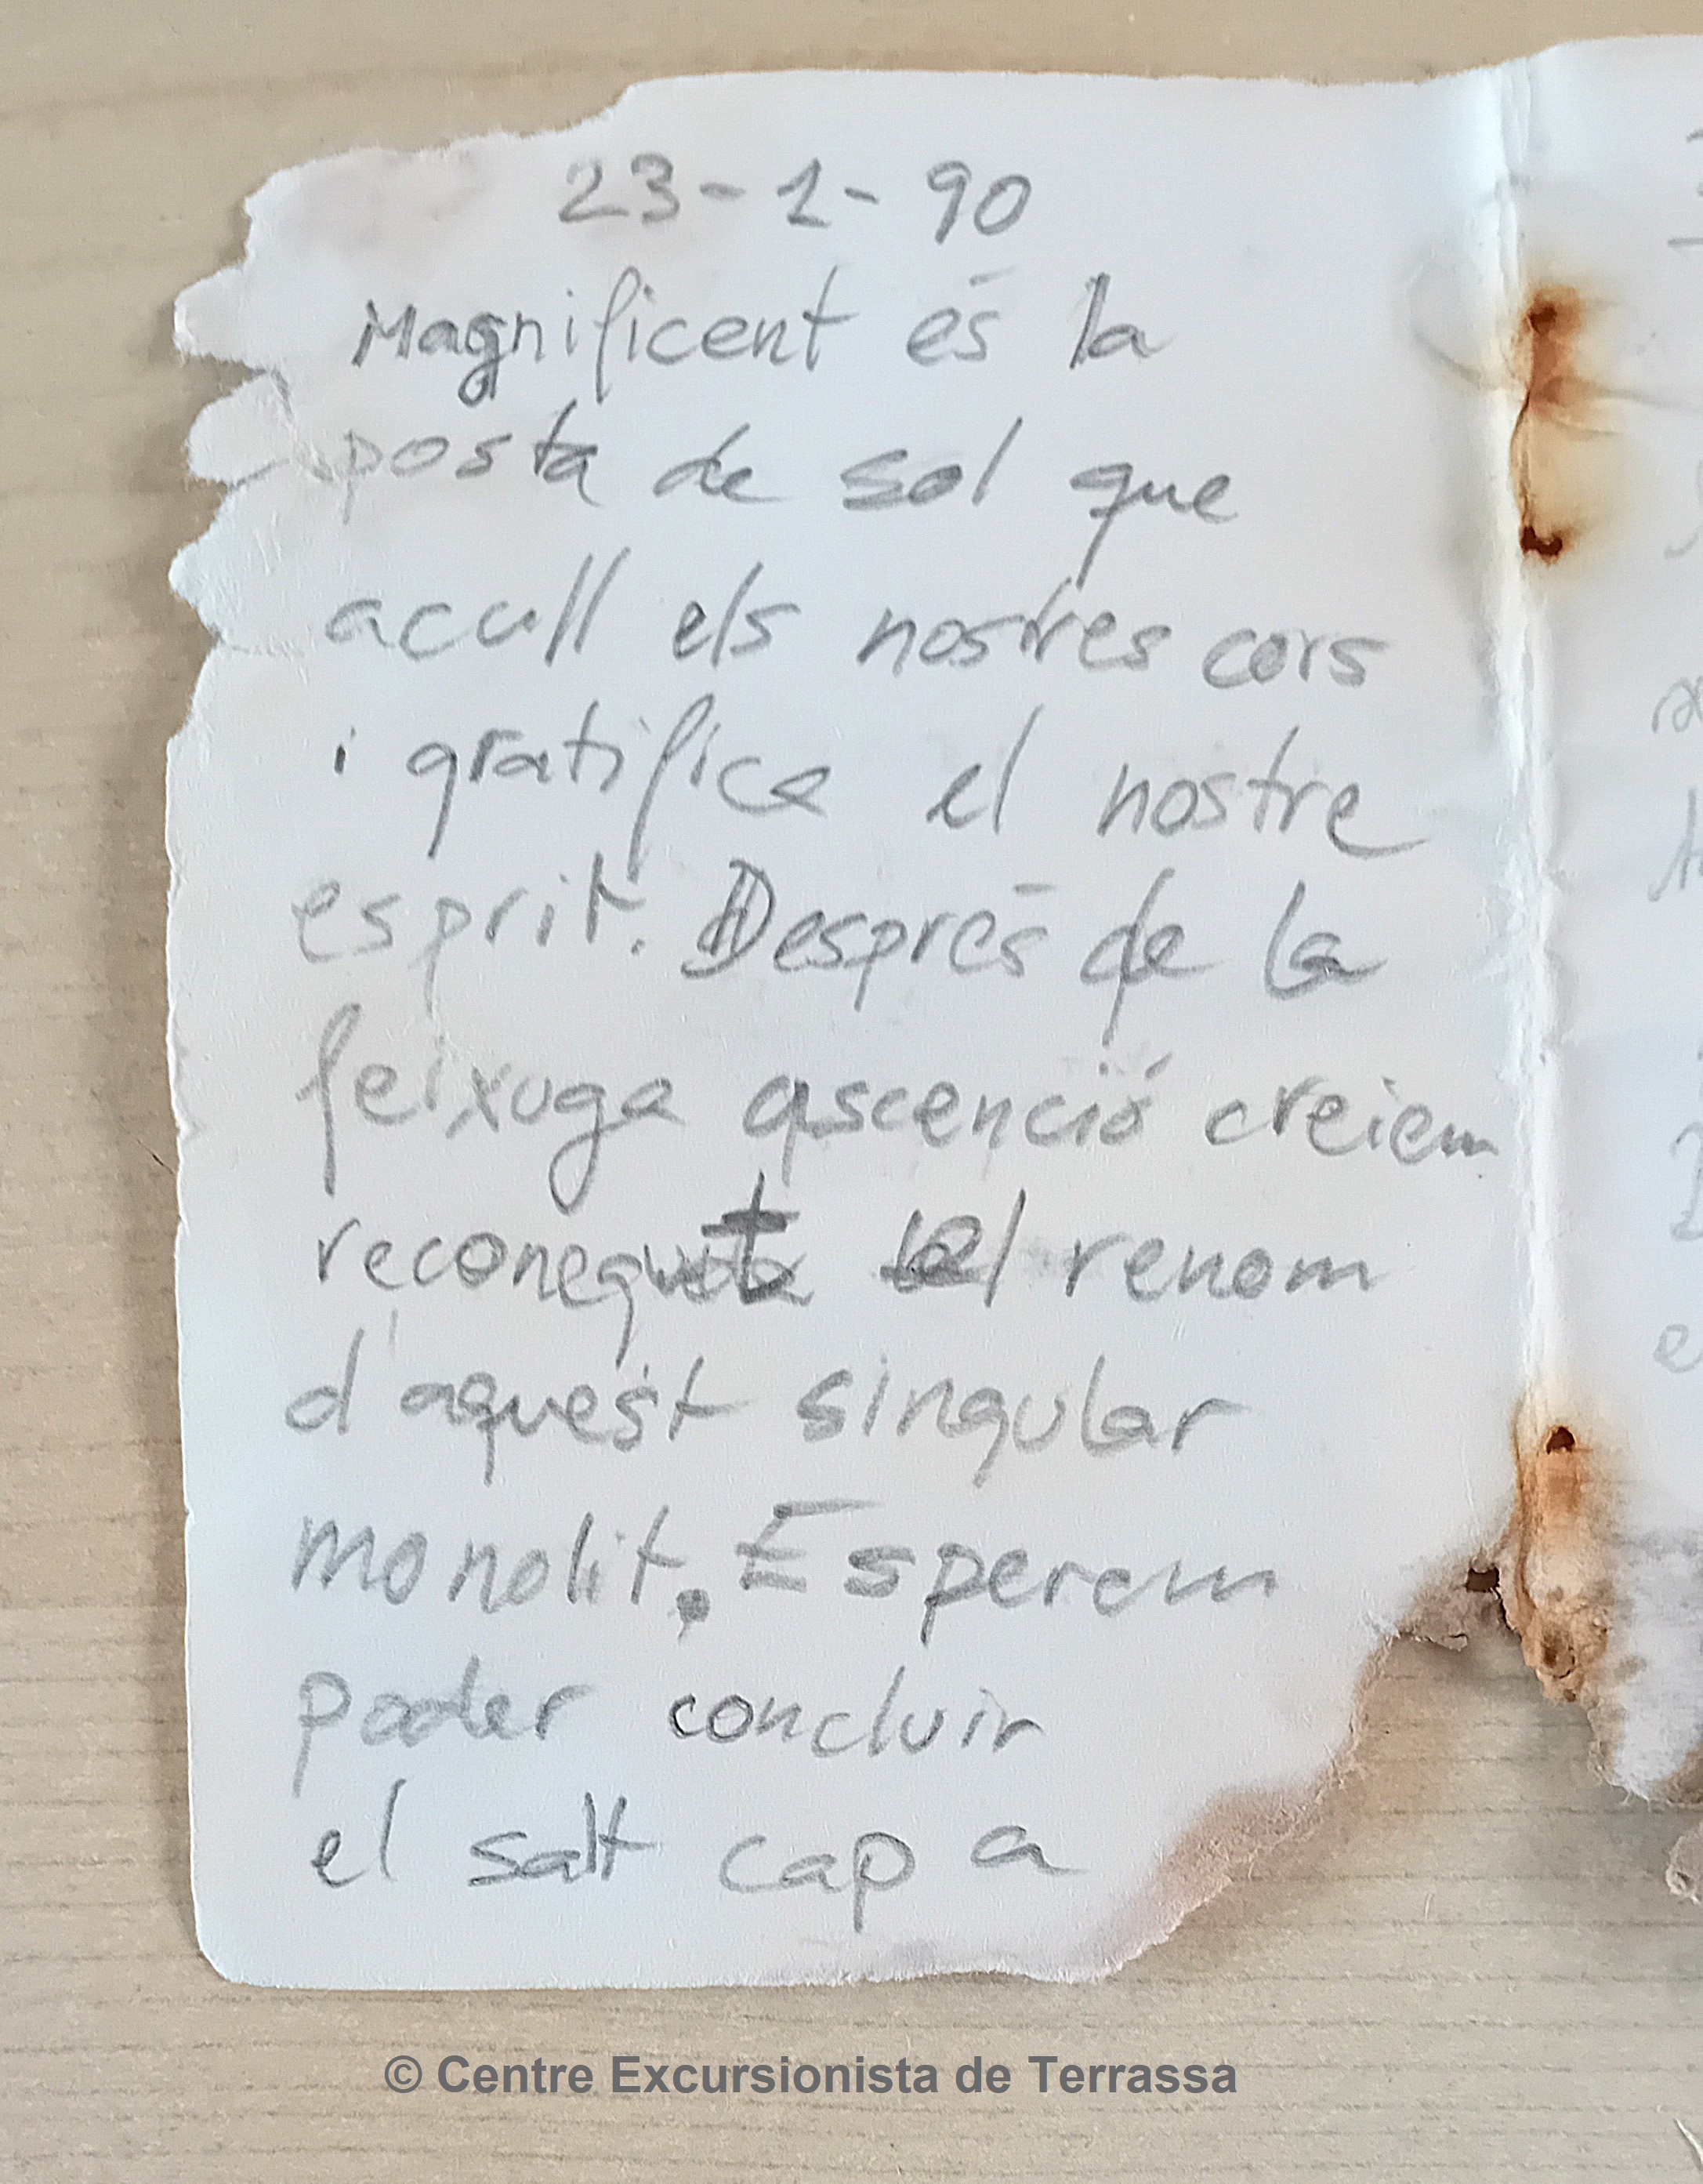 23-1-90
Magnificent és la
posta de sol que
acull els nostres cors
i gratifica el nostre
esprit. Després de la
feixuga ascenció creiem
reconegut el renom
d'aquest singular
monolit. Esperem
poder concluir
el salt cap a
© Centre Excursionista de Terrassa